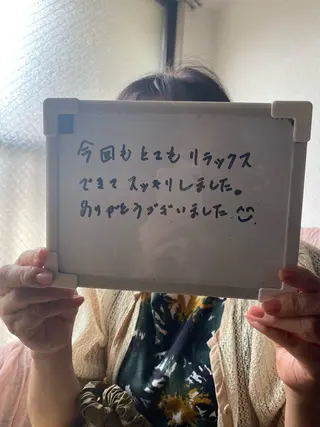 今回もとてもリラックス
できてスッキリしました。
ありがとうございました^^